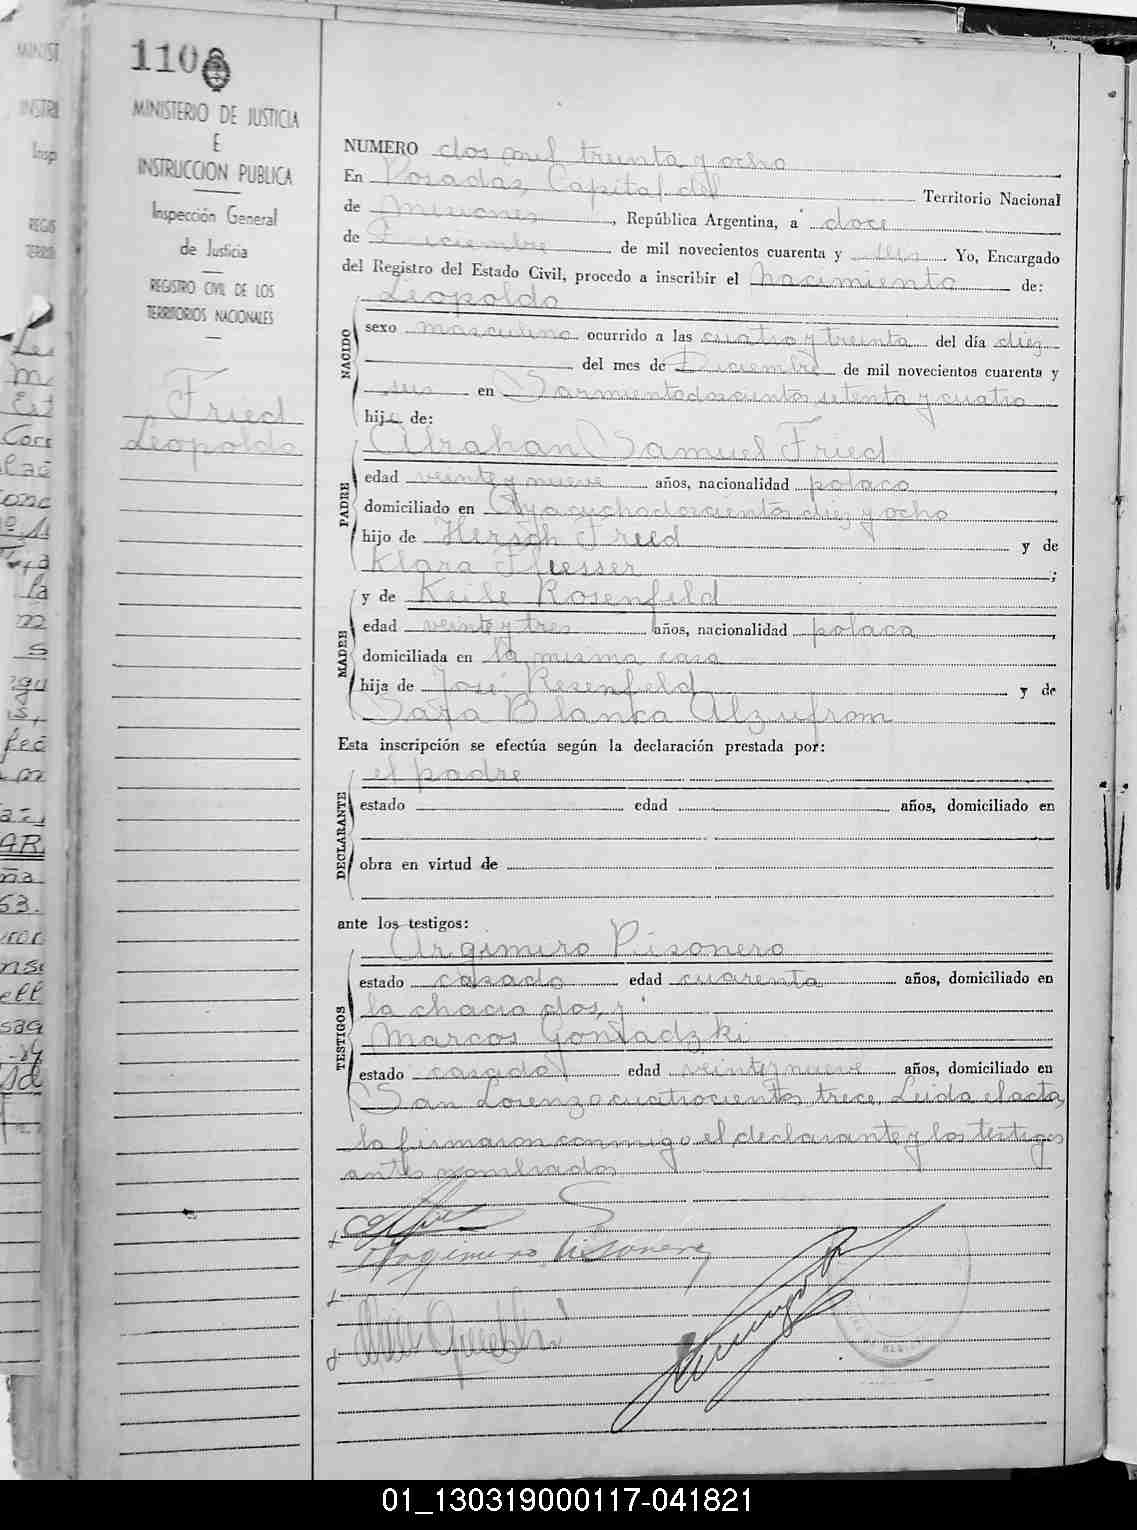 1106
MINISTERIO DE JUSTICIA
E
INSTRUCCION PUBLICA
Inspección General
de Justicia
REGISTRO CIVIL DE LOS
TERRITORIOS NACIONALES
Fried
Leopoldo
NUMERO dos mil treinta y ocho
En Posadas, Capital del Territorio Nacional
de Misiones, República Argentina, a doce
de Diciembre de mil novecientos cuarenta y seis Yo, Encargado
del Registro del Estado Civil, procedo a inscribir el nacimiento de:
NACIDO
Leopoldo
sexo masculino ocurrido a las cuatro y treinta del día diez
del mes de Diciembre de mil novecientos cuarenta y
seis en Sarmiento doscientos setenta y cuatro
hijo de:
PADRE
Abrahan Samuel Fried
edad veinte y nueve años, nacionalidad polaco
domiciliado en Ayacucho doscientos diez y ocho
hijo de Hersch Fried y de
Klara
MADRE
y de Keile Rosenfeld
edad veinte y tres años, nacionalidad polaca
domiciliada en la misma casa
hija de José Rosenfeld y de
Sara Blanka
Esta inscripción se efectúa según la declaración prestada por:
DECLARANTE
el padre
estado edad años, domiciliado en
obra en virtud de
ante los testigos:
TESTIGOS
Argimiro Pisonero
estado casado edad cuarenta años, domiciliado en
la chacra dos, y
Marcos
estado casado edad veinte y nueve años, domiciliado en
San Lorenzo cuatrocientos trece. Leida el acta,
la firmaron conmigo el declarante y los testigos
antes nombrados
Argimiro Pisonero
01_130319000117-041821